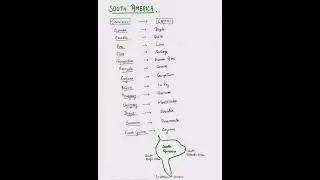 SOUTH AMERICA
Countries → Capital
Colombia → Bogota
Ecuador → Quito
Peru → Lima
Chile → Santiago
Argentina → Buenos Aires
Venezuela → Caracas
Guyana → Georgetown
Bolivia → La Paz
Paraguay → Asuncion
Uruguay → Montevideo
Brazil → Brasilia
Suriname → Paramaribo
French Guiana → Cayenne
South America
South
South